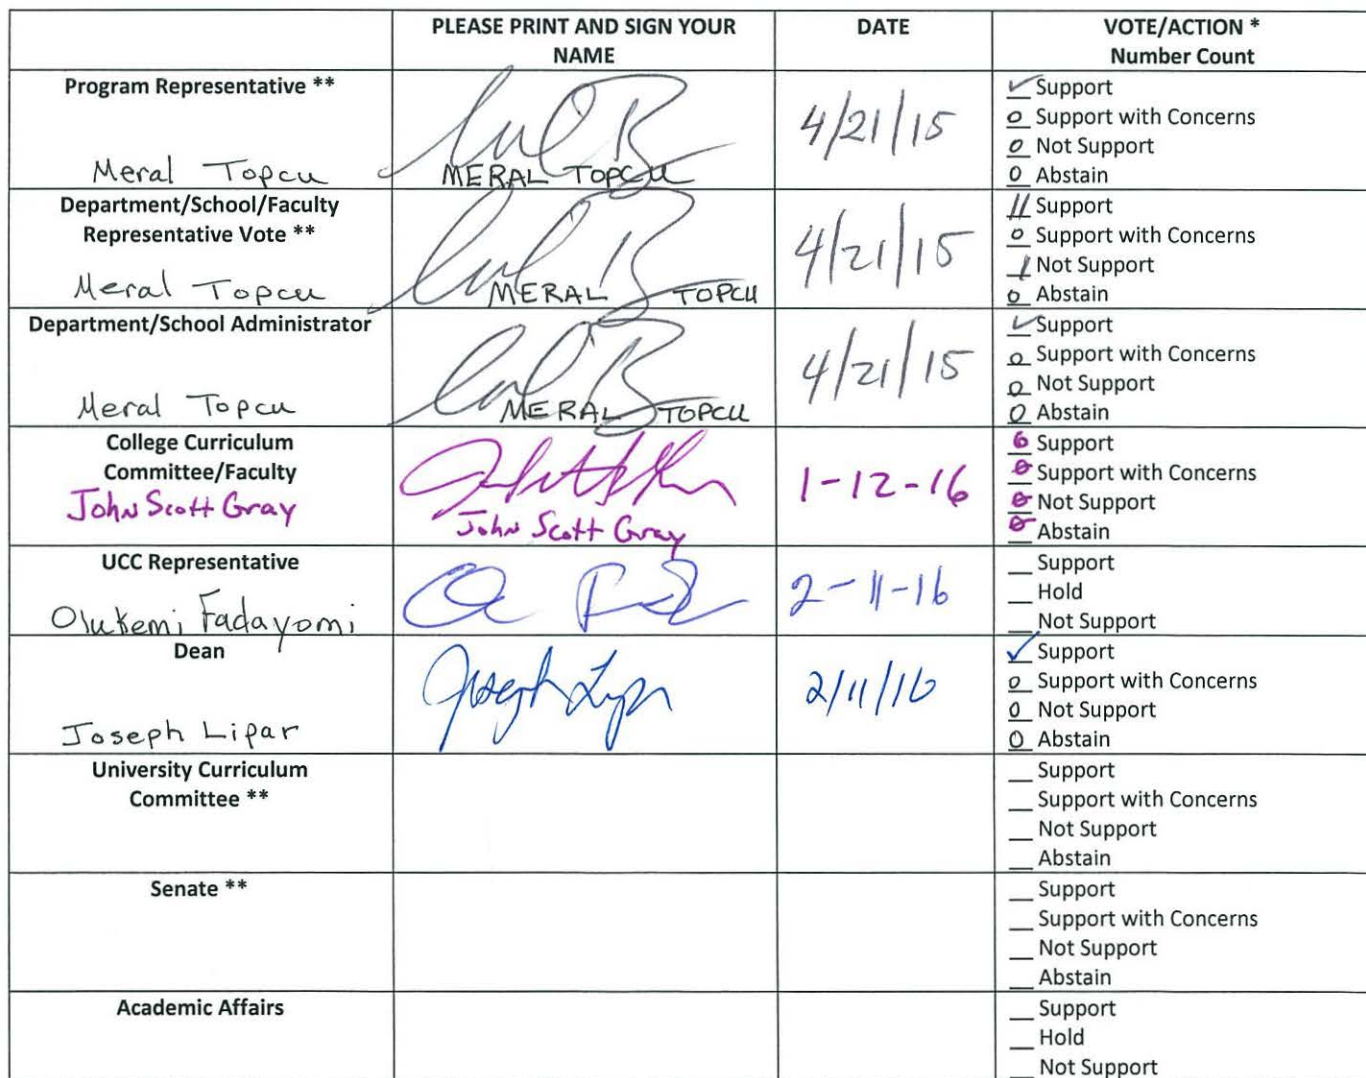 PLEASE PRINT AND SIGN YOUR NAME
DATE
VOTE/ACTION *
Number Count
Program Representative **
Meral Topcu
MERAL TOPCU
4/21/15
✓ Support
0 Support with Concerns
0 Not Support
0 Abstain
Department/School/Faculty
Representative Vote **
Meral Topcu
MERAL TOPCU
4/21/15
11 Support
0 Support with Concerns
1 Not Support
0 Abstain
Department/School Administrator
Meral Topcu
MERAL TOPCU
4/21/15
✓ Support
0 Support with Concerns
0 Not Support
0 Abstain
College Curriculum
Committee/Faculty
John Scott Gray
John Scott Gray
1-12-16
6 Support
0 Support with Concerns
0 Not Support
0 Abstain
UCC Representative
Olukemi Fadayomi
2-11-16
__ Support
__ Hold
__ Not Support
Dean
Joseph Lipar
2/11/16
✓ Support
0 Support with Concerns
0 Not Support
0 Abstain
University Curriculum
Committee **
__ Support
__ Support with Concerns
__ Not Support
__ Abstain
Senate **
__ Support
__ Support with Concerns
__ Not Support
__ Abstain
Academic Affairs
__ Support
__ Hold
__ Not Support